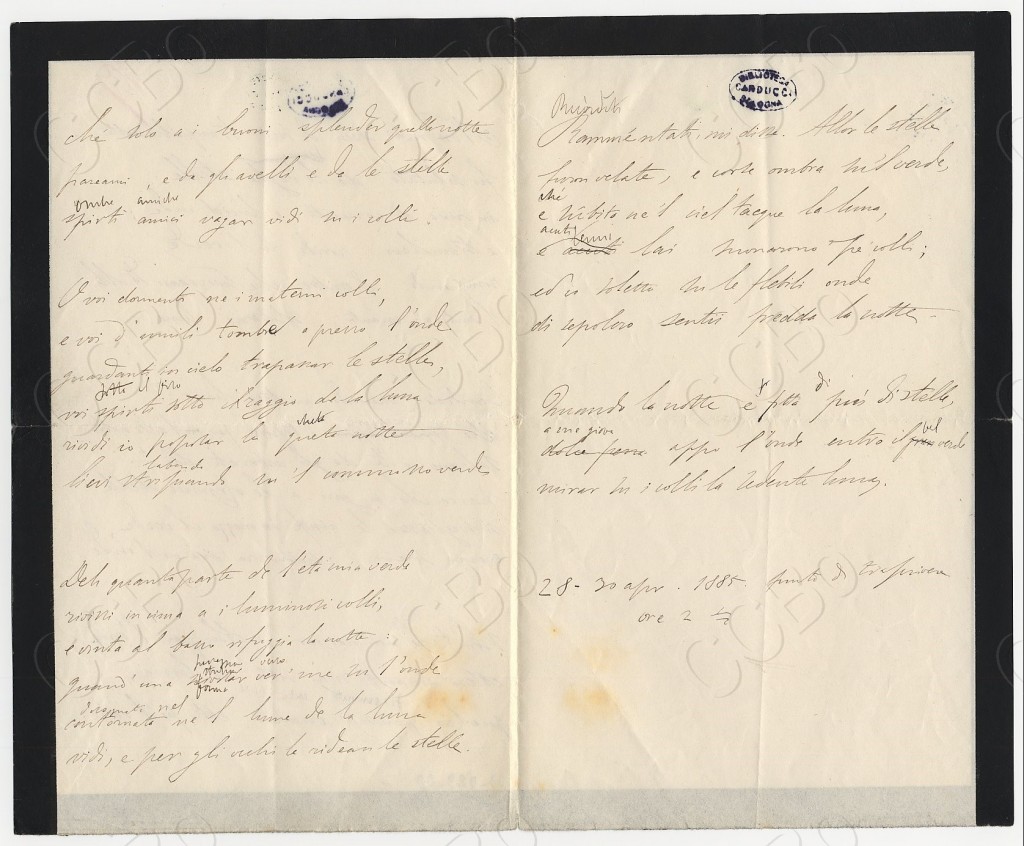 BIBLIOTECA
CARDUCCI
BOLOGNA
che solo a i buoni splender quella notte
pareami, e da gli avelli e da le stelle
ombre amiche
spirti amici vagar vidi su i colli.
O voi dormenti ne i materni colli,
e voi d'umili tombe a presso l'onde
guardanti in cielo trapassar le stelle,
sotto il fiso
voi spirti sotto il raggio de la luna
cheta
rividi io popolar la queta notte
labendo
lievi strisciando su 'l commosso verde
Deh quanta parte de l'età mia verde
rivissi in cima a i luminosi colli,
e vinta al basso rifuggia la notte:
quand' una ver' me su l'onde
forma
disegnata nel
contornata ne 'l lume de la luna
vidi, e per gli occhi le ridean le stelle.
Ricorditi
Rammentati, mi disse. Allor le stelle
furon velate, e corse ombra su 'l verde,
e subito ne 'l ciel tacque la luna,
acuti
e lai sonarono pe' colli;
ed io soletto su le flebili onde
di sepolcro sentii fredda la notte.
Quando la notte è fitta più di stelle,
a me giova
appo l'onde entro il verde
bel
mirar su i colli la sedente luna.
28-30 apr. 1885. finito di trascrivere
ore 2 ½